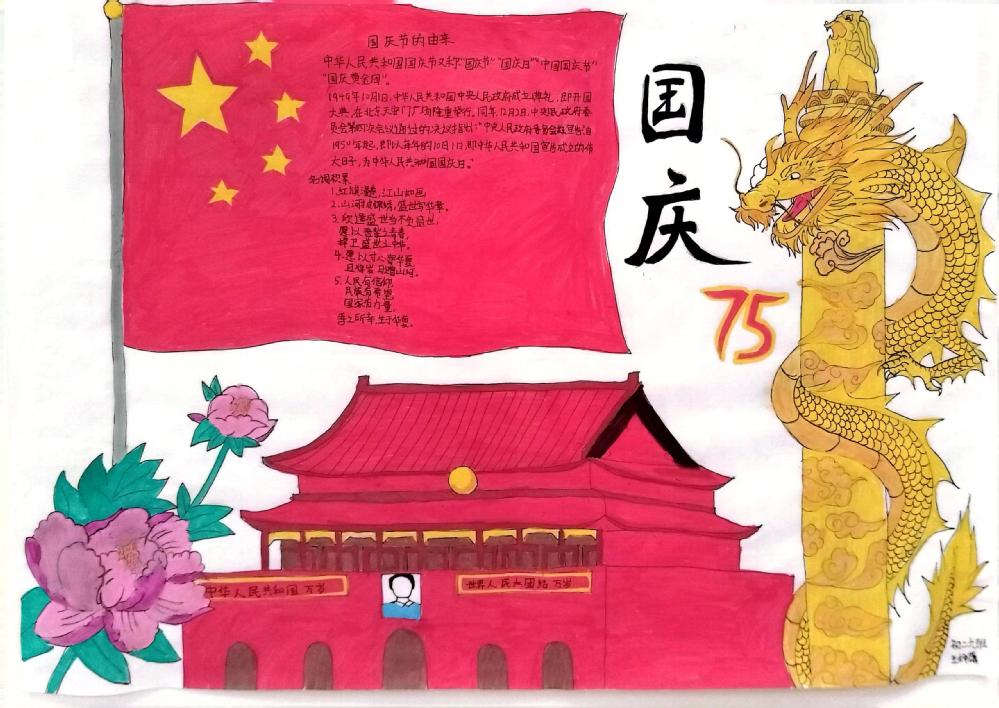 国庆节的由来
中华人民共和国国庆节又称"国庆节""国庆日""中国国庆节"
"国庆黄金周"
1949年10月1日,中华人民共和国中央人民政府成立典礼,即开国
大典,在北京天安门广场隆重举行。同年12月3日,中央人民政府委
员会第四次会议通过的决议指出:"中央人民政府委员会宣告:自
1950年起,即以每年的10月1日,即中华人民共和国宣告成立的伟
大日子,为中华人民共和国国庆日。"
1.红旗漫卷,江山如画
2.山河披锦绣,盛世写华章。
3.欣逢盛世当不负盛世,
愿以吾辈之青春,
捍卫盛世之中华。
4.愿以寸心寄华夏
且将岁月赠山河。
5.人民有信仰
民族有希望
国家有力量,
吾之所幸,生于华夏。
国庆
75
中华人民共和国万岁
世界人民大团结万岁
初二六班